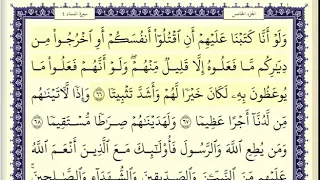 الجزء الخامس سورة النساء ٤
وَلَوْ أَنَّا كَتَبْنَا عَلَيْهِمْ أَنِ اقْتُلُوٓا۟ أَنفُسَكُمْ أَوِ اخْرُجُوا۟ مِن
دِيَٰرِكُم مَّا فَعَلُوهُ إِلَّا قَلِيلٌ مِّنْهُمْ ۖ وَلَوْ أَنَّهُمْ فَعَلُوا۟ مَا
يُوعَظُونَ بِهِۦ لَكَانَ خَيْرًا لَّهُمْ وَأَشَدَّ تَثْبِيتًا ٦٦ وَإِذًا لَّـَٔاتَيْنَٰهُم
مِّن لَّدُنَّآ أَجْرًا عَظِيمًا ٦٧ وَلَهَدَيْنَٰهُمْ صِرَٰطًا مُّسْتَقِيمًا ٦٨
وَمَن يُطِعِ اللَّهَ وَالرَّسُولَ فَأُو۟لَٰٓئِكَ مَعَ الَّذِينَ أَنْعَمَ اللَّهُ
عَلَيْهِم مِّنَ النَّبِيِّـۧنَ وَالصِّدِّيقِينَ وَالشُّهَدَآءِ وَالصَّٰلِحِينَ ۚ